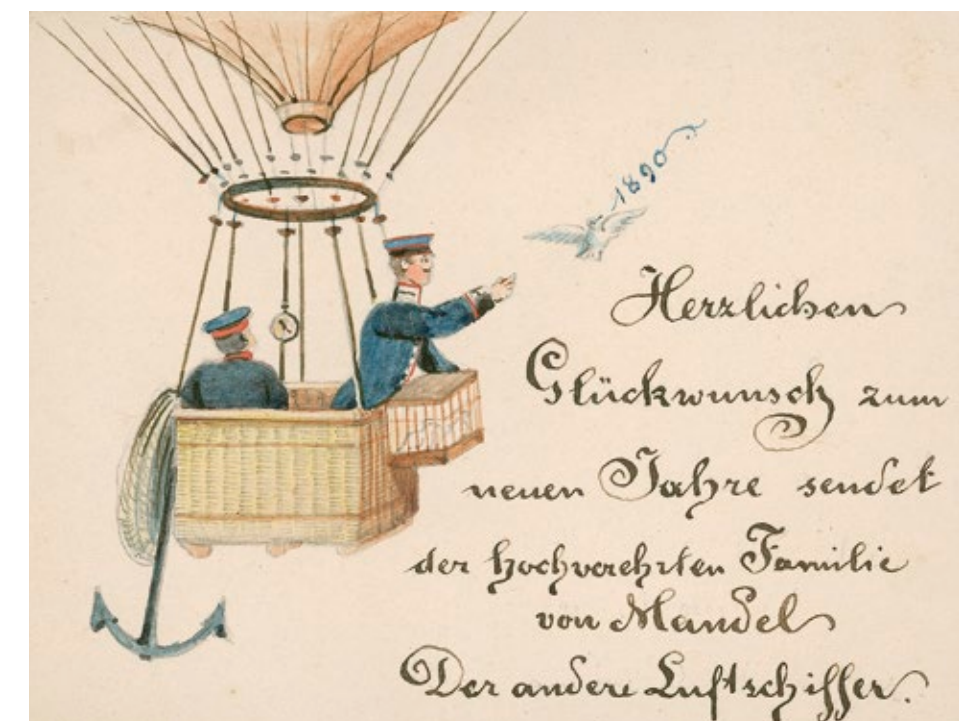 1890
Herzlichen
Glückwunsch zum
neuen Jahre sendet
der hochverehrten Familie
von Mandel
Der andere Luftschiffer.